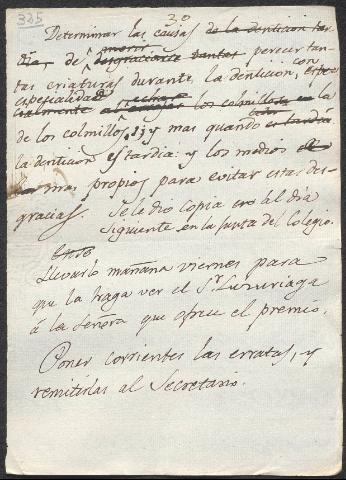 335
30
Determinar las causas de la denticion tar
dia, de morir desgraciadte tantas perecer tan-
tas criaturas durante la denticion, con
especialidad cialmente los colmillos en la
de los colmillos; y mas quando es tardia
la denticion es tardia: y los medios
mas propios para evitar estas des-
gracias. Se le dio copia ero al dia
siguiente en la Junta del Colegio.
Llevarlo mañana viernes para
que la haga ver el Sr. Luzuriaga
á la Señora que ofrece el premio.
Poner corrientes las erratas, y
remitirlas al Secretario.